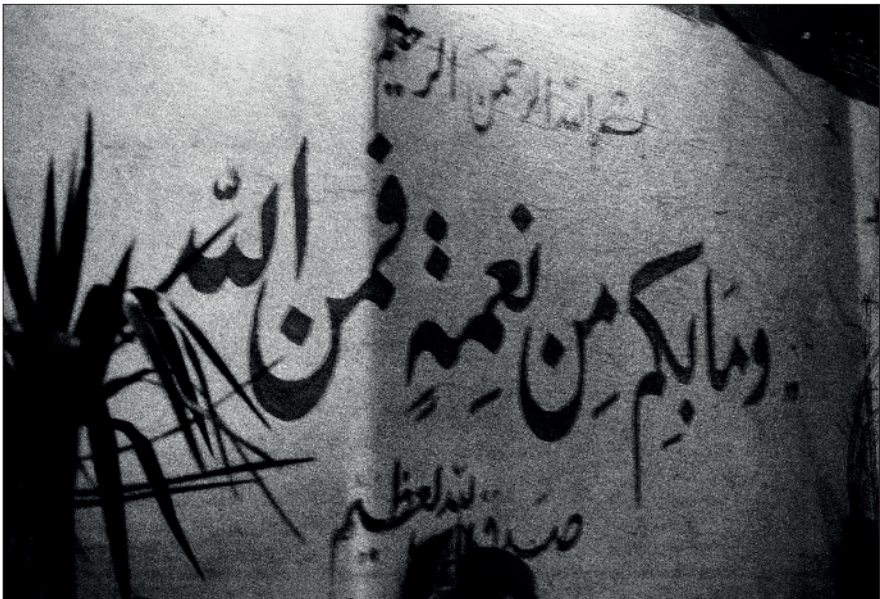 بسم الله الرحمن الرحيم
وَمَا بِكُم مِن نِعمةٍ فمن اللّه
صدق الله العظيم